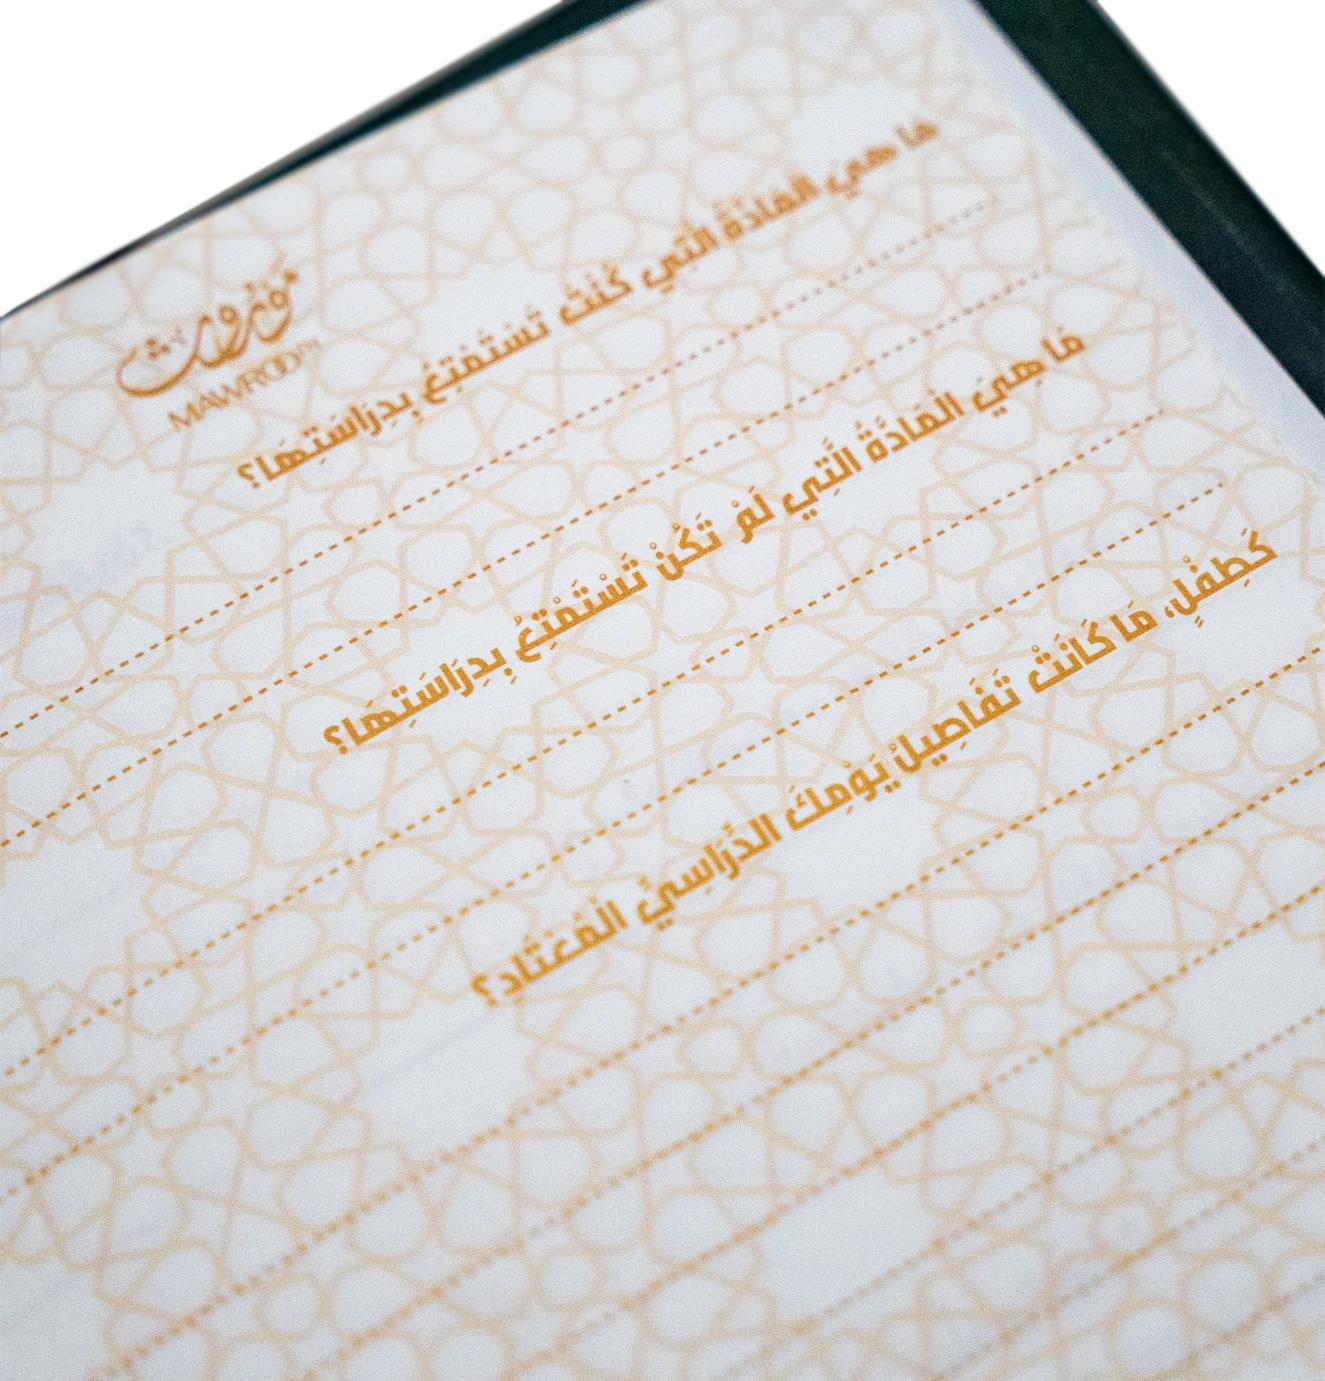 مَوْرُوث
MAWROD™
مَا هِيَ الْمَادَّةُ الَّتِي كُنْتَ تَسْتَمْتِعُ بِدِرَاسَتِهَا؟
مَا هِيَ الْمَادَّةُ الَّتِي لَمْ تَكُنْ تَسْتَمْتِعُ بِدِرَاسَتِهَا؟
كَطِفْلٍ، مَا كَانَتْ تَفَاصِيلُ يَوْمِكَ الدِّرَاسِيِّ الْمُعْتَادِ؟